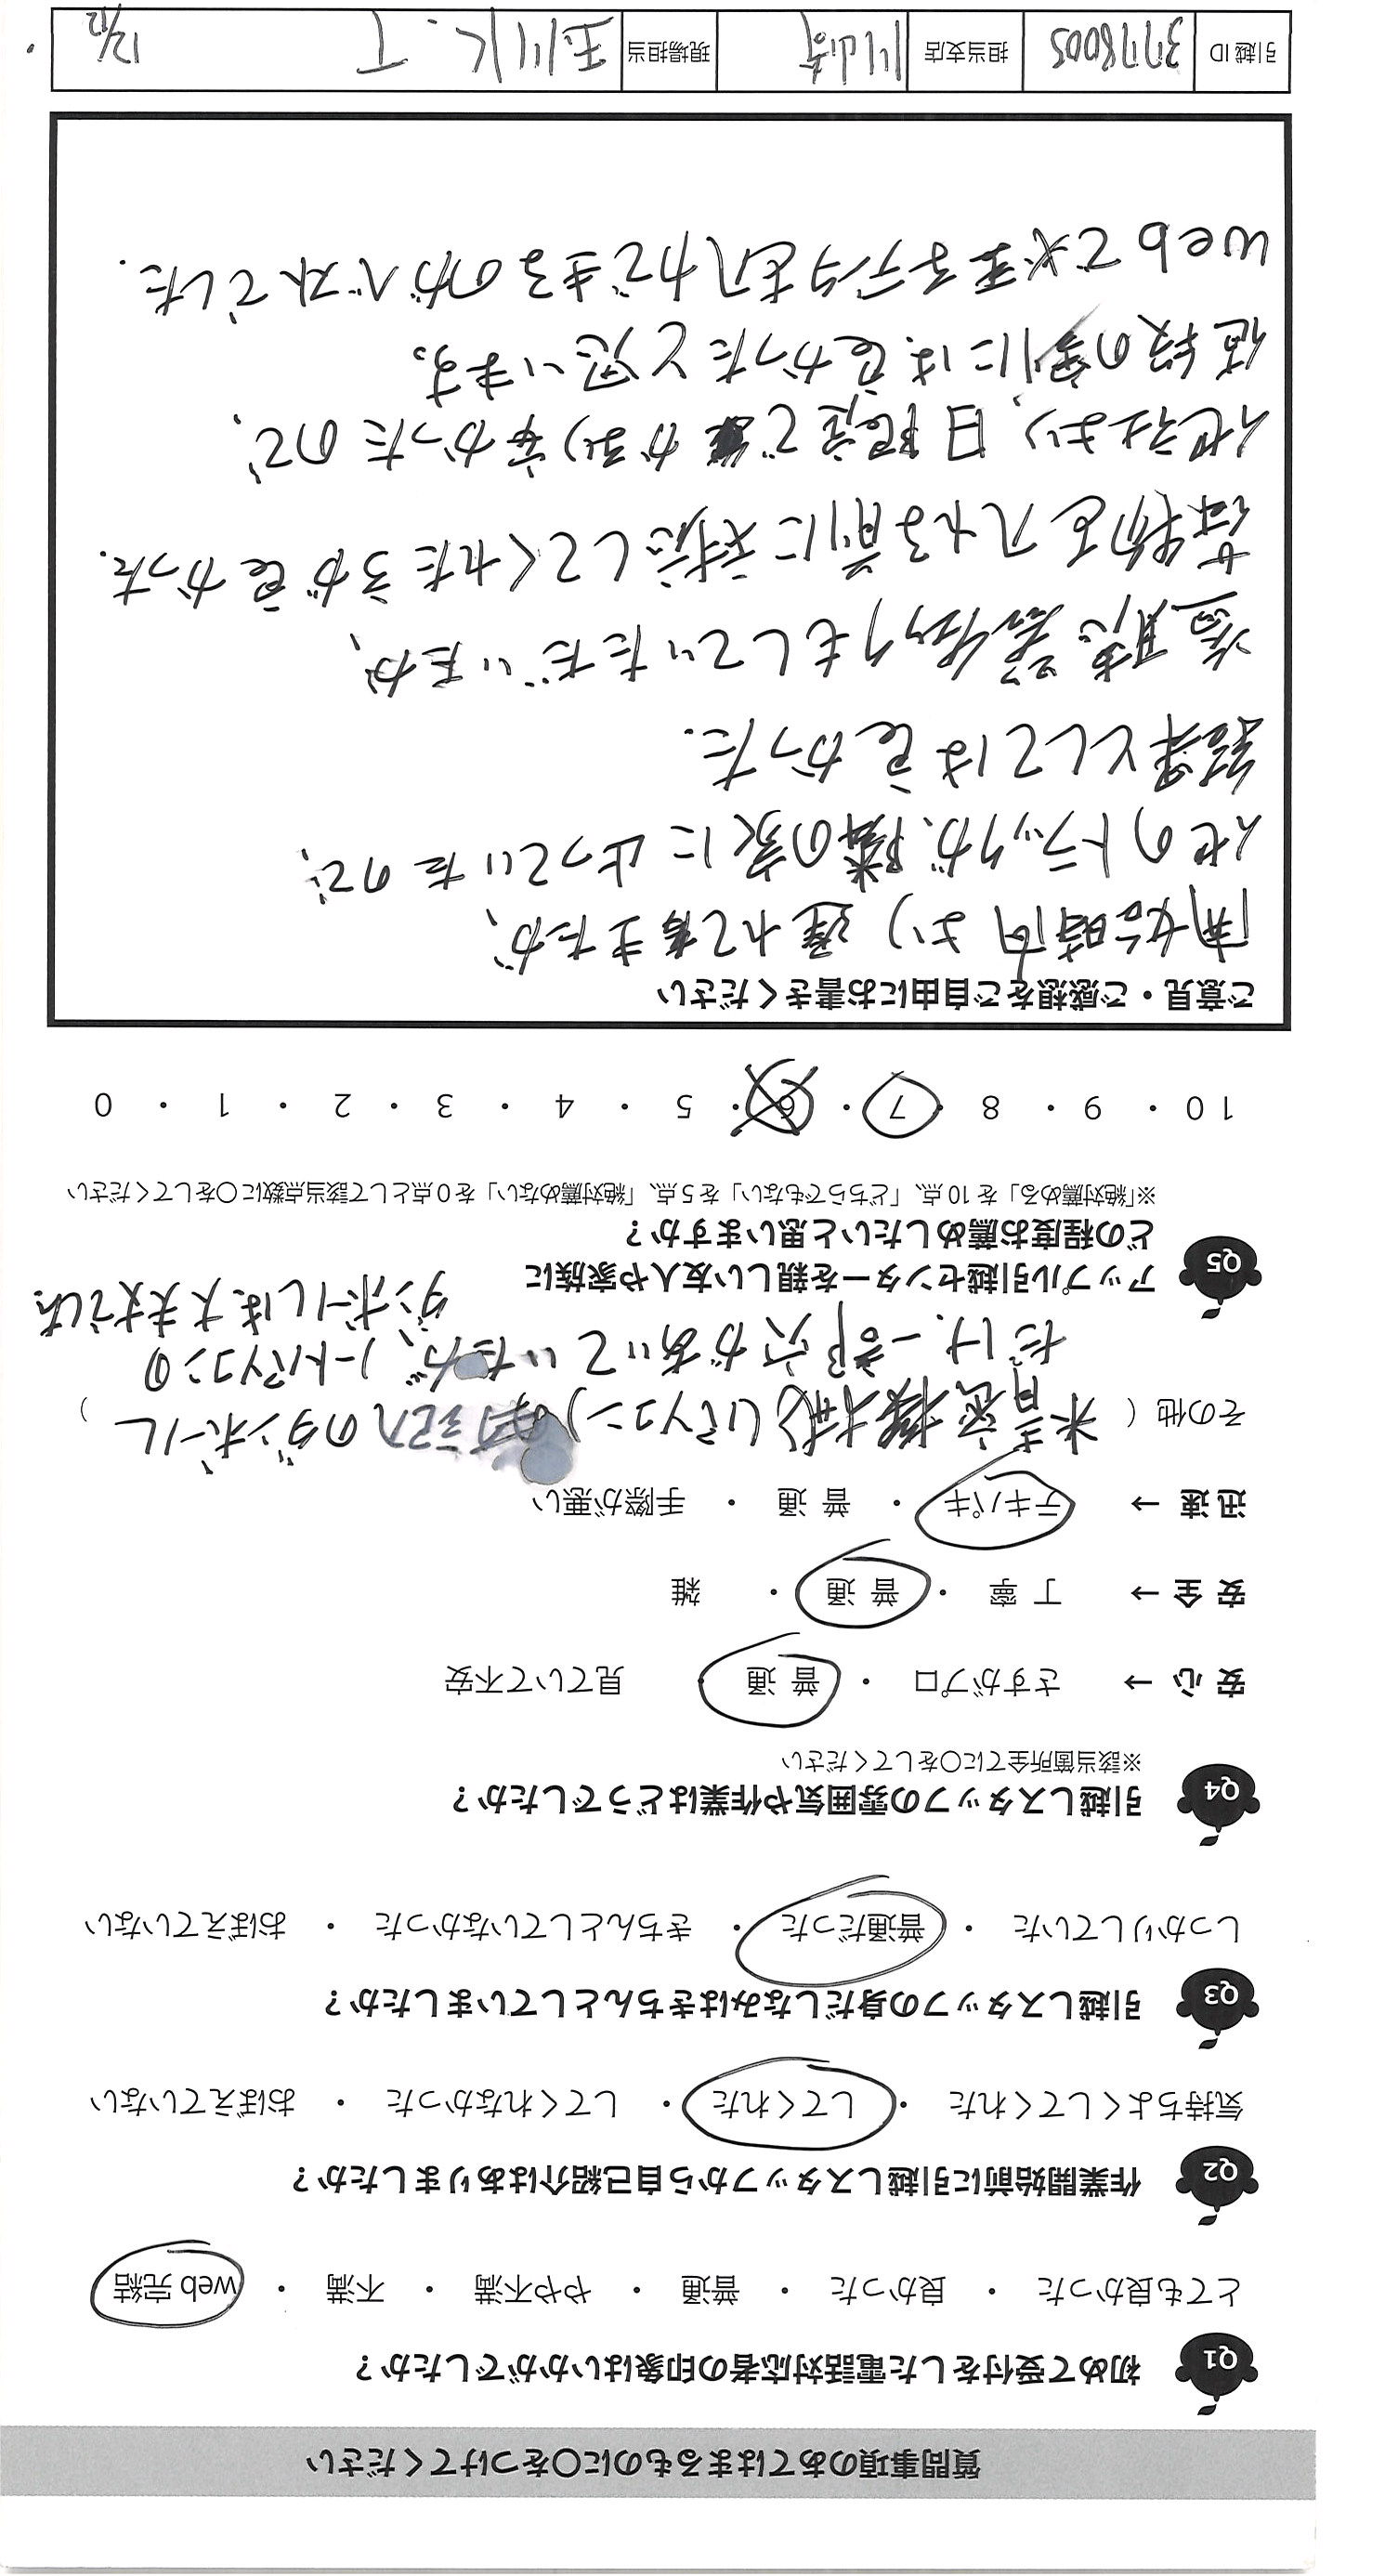 質問事項のあてはまるものに〇をつけてください
Q1 初めて受付をした電話対応者の印象はいかがでしたか？
とても良かった ・ 良かった ・ 普通 ・ やや不満 ・ 不満 ・ web 完結
Q2 作業開始前に引越しスタッフから自己紹介はありましたか？
気持ちよくしてくれた ・ してくれた ・ してくれなかった ・ おぼえていない
Q3 引越しスタッフの身だしなみはきちんとしていましたか？
しっかりしていた ・ 普通だった ・ きちんとしていなかった ・ おぼえていない
Q4 引越しスタッフの雰囲気や作業はどうでしたか？
※該当箇所全てに〇をしてください
安 心 → さすがプロ ・ 普 通 見ていて不安
安 全 → 丁 寧 ・ 普 通 ・ 雑
迅 速 → テキパキ ・ 普 通 ・ 手際が悪い
その他 ( 精密機械(パソコン) 記入のダンボール )
だけ、一部穴があいていたが、ノートパソコンの
ダンボールは大丈夫でした
Q5 アップル引越センターを親しい友人や家族に
どの程度お薦めしたいと思いますか？
※「絶対薦める」を 10 点、「どちらでもない」を 5 点、「絶対薦めない」を 0 点として該当点数に〇をしてください
10 ・ 9 ・ 8 ・ 7 ・ 6 ・ 5 ・ 4 ・ 3 ・ 2 ・ 1 ・ 0
ご意見・ご感想をご自由にお書きください
開始時間より遅れて着ましたが、
他のトラックが、隣の家に止っていたので、
結果としては良かった.
食器チェックもしていただいたが、
荷物を入れる前に対応してくれた方が良かった.
他社より、日限定でかなり安かったので、
値段の割には良かったと思います。
webで大型家データ入力できるのがベストでした.
引越 ID 37718005 担当支店 川崎 現場担当 玉川 K.T 12/12